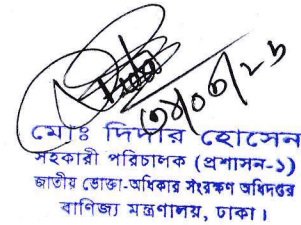 মোঃ দিদার হোসেন
সহকারী পরিচালক (প্রশাসন-১)
জাতীয় ভোক্তা-অধিকার সংরক্ষণ অধিদপ্তর
বাণিজ্য মন্ত্রণালয়, ঢাকা।